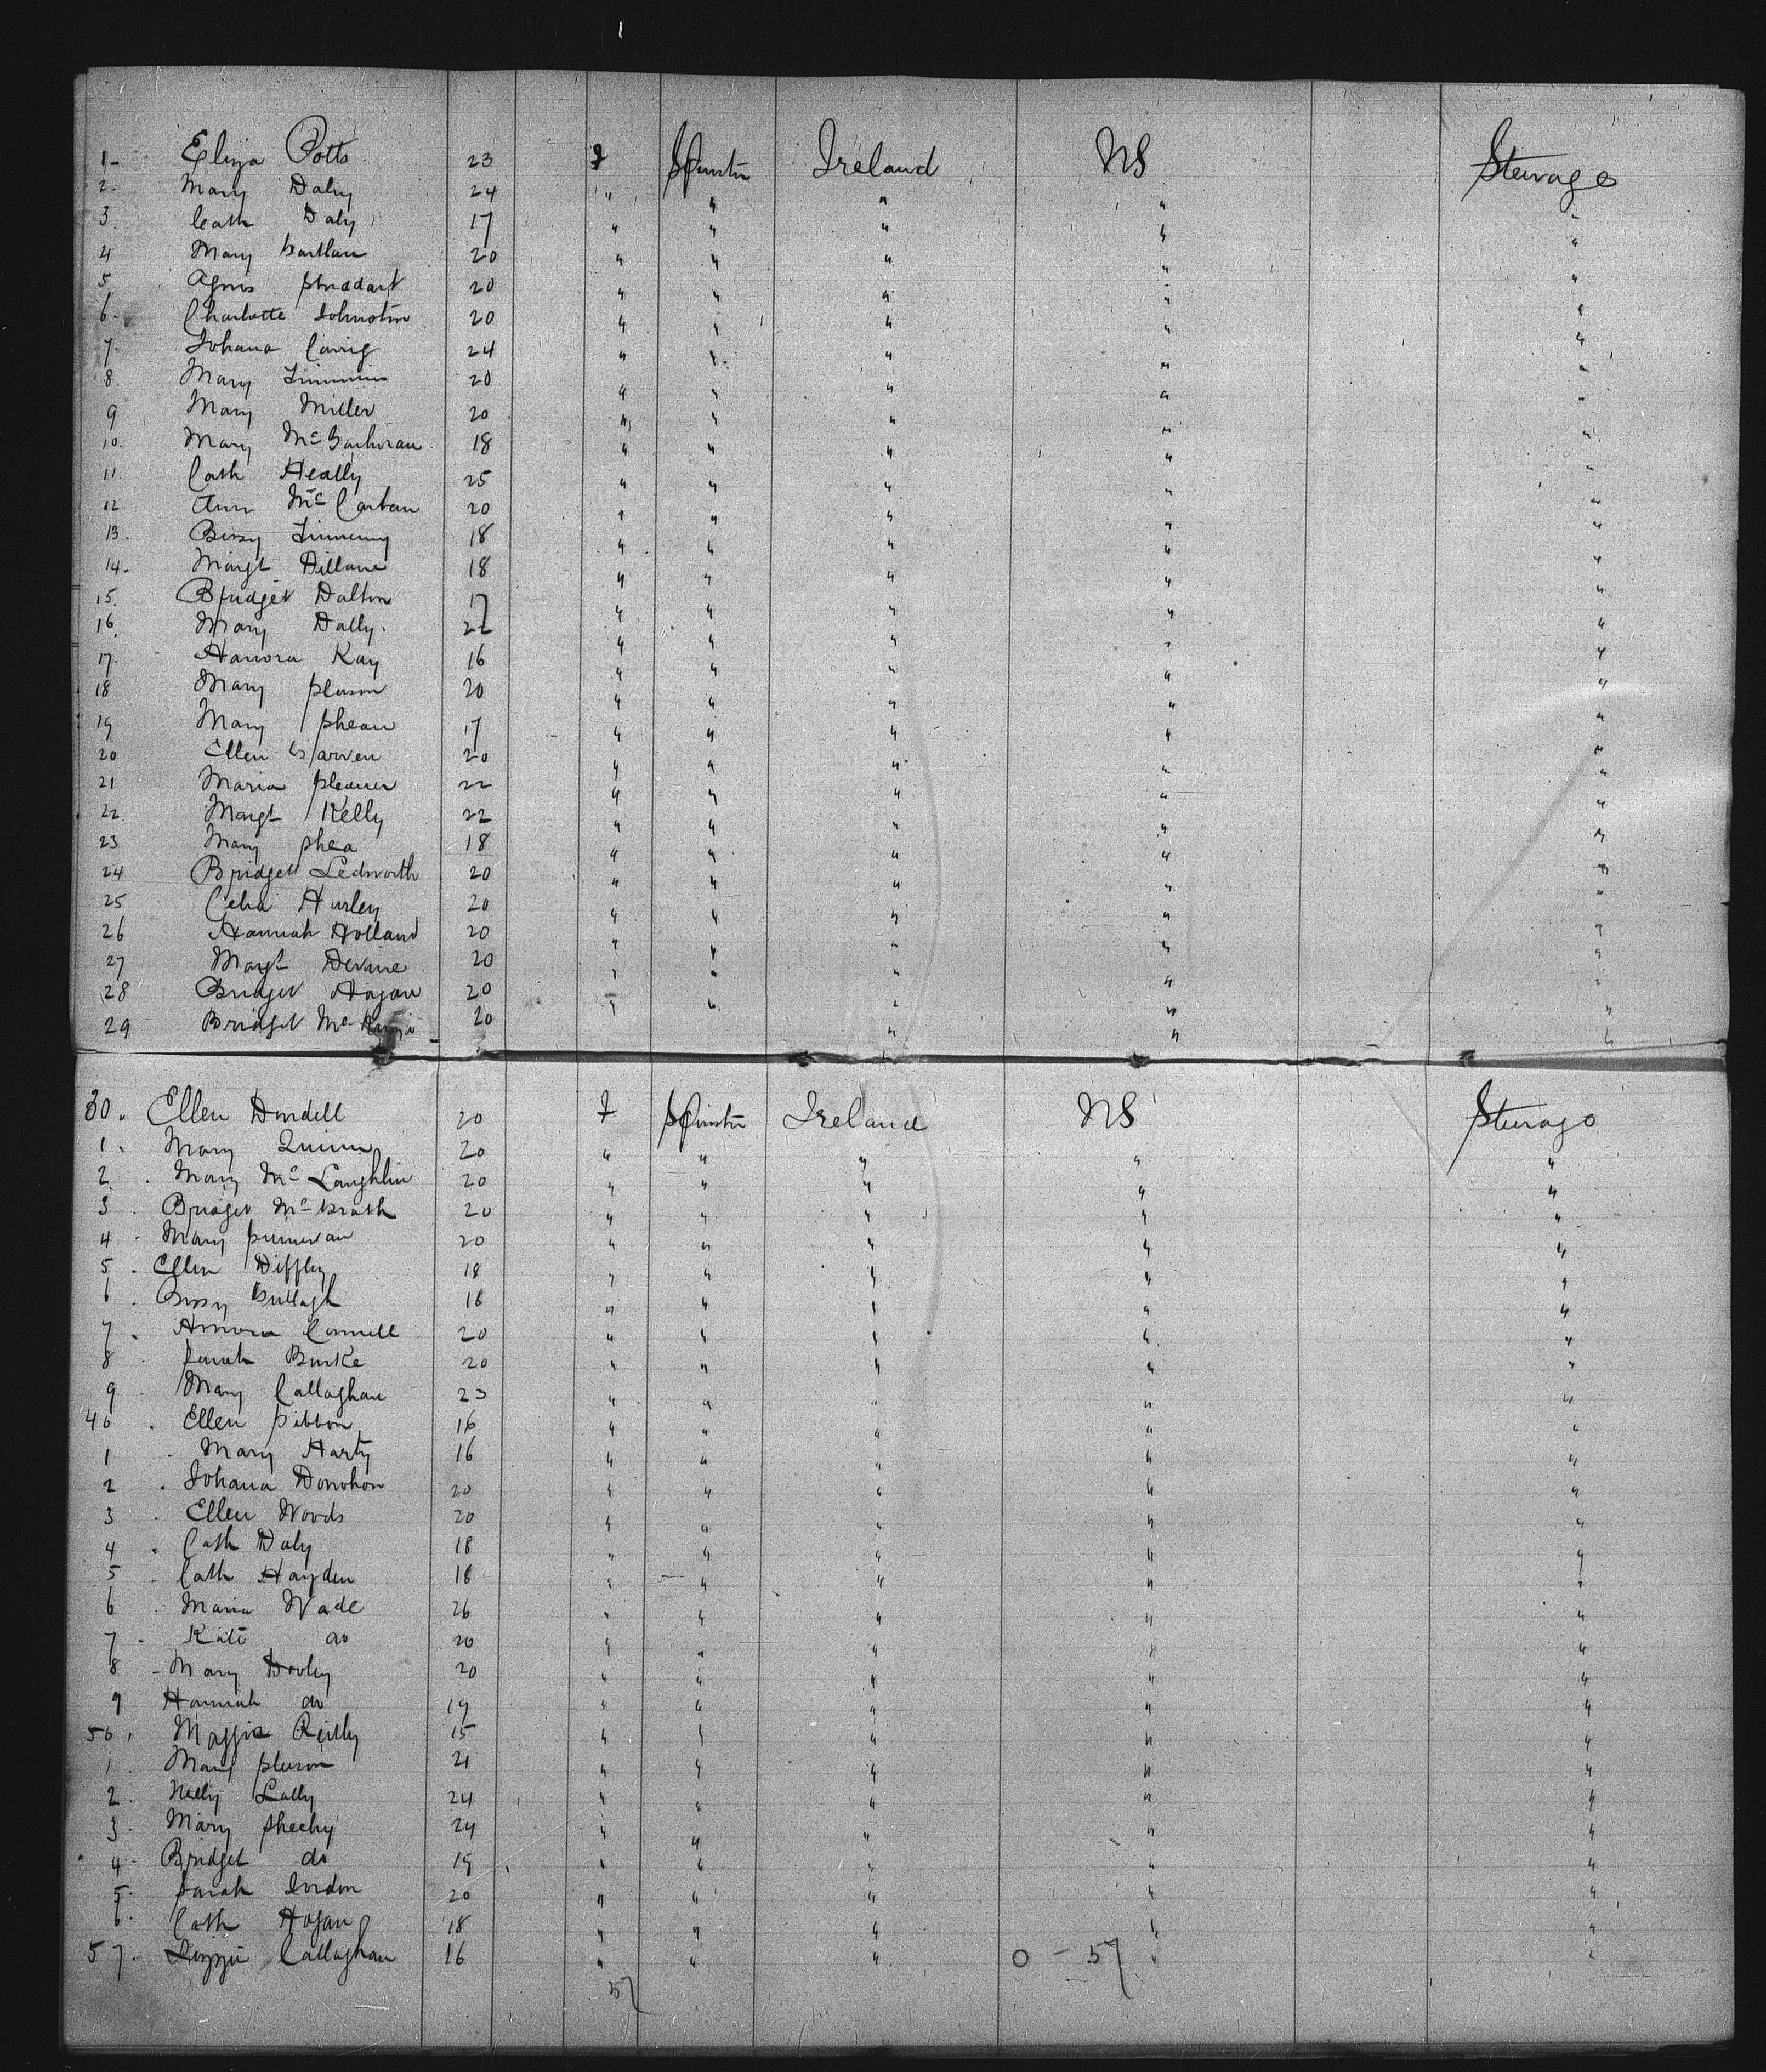 1- Eliza Potts 23 F Spinster Ireland US Steerage
2. Mary Daly 24 " " " " "
3. Cath Daly 17 " " " " "
4 Mary 20 " " " " "
5 Agnes Studdart 20 " " " " "
6. Charlotte Johnston 20 " " " " "
7. Johana 24 " " " " "
8. Mary Timmins 20 " " " " "
9 Mary Miller 20 " " " " "
10. Mary 18 " " " " "
11 Cath Heally 25 " " " " "
12 Ann 20 " " " " "
13. Bessy 18 " " " " "
14. Margt Dillane 18 " " " " "
15. Bridget Dalton 17 " " " " "
16. Mary Dally. 22 " " " " "
17. Hanora Kay 16 " " " " "
18 Mary 20 " " " " "
19 Mary Shean 17 " " " " "
20 Ellen Garven 20 " " " " "
21 Maria 22 " " " " "
22. Margt Kelly 22 " " " " "
23 Mary Shea 18 " " " " "
24 Bridget Ledworth 20 " " " " "
25 Celia Hurley 20 " " " " "
26 Hannah Holland 20 " " " " "
27 Margt Devine 20 " " " " "
28 Bridget Hogan 20 " " " " "
29 Bridget 20 " " "
30. Ellen 20 F Spinster Ireland US Steerage
1. Mary Quinn 20 " " " " "
2. Mary McLaughlin 20 " " " " "
3. Bridget McGrath 20 " " " " "
4 - Mary 20 " " " " "
5. Ellen Diffley 18 " " " " "
6. Bessy Gullagh 18 " " " " "
7. Annora Connell 20 " " " " "
8. Sarah Burke 20 " " " " "
9 - Mary Callaghan 23 " " " " "
40. Ellen Gibbon 16 " " " " "
1 - Mary Harty 16 " " " " "
2. Johana Donohoe 20 " " " " "
3. Ellen Woods 20 " " " " "
4. Cath Daly 18 " " " " "
5. Cath Hayden 18 " " " " "
6. Maria Wade 26 " " " " "
7 - Kate do 20 " " " " "
8 - Mary Dooley 20 " " " " "
9 Hannah do 19 " " " " "
50. Maggie Reilly 15 " " " " "
1. Mary 21 " " " " "
2. Nelly Lally 24 " " " " "
3. Mary Sheehy 24 " " " " "
4 - Bridget do 19 " " " " "
5. Sarah Jordon 20 " " " " "
6. Cath Hogan 18 " " " " "
57. Lizzie Callaghan 16 " " " 0 - 57 " "
57